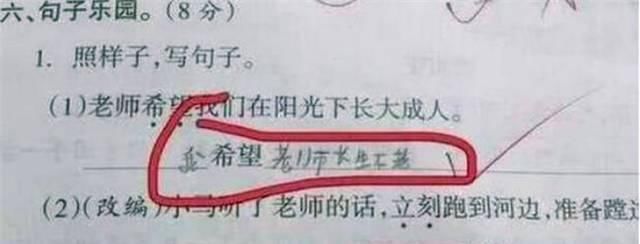 六、句子乐园。(8分)
1. 照样子,写句子。
(1)老师希望我们在阳光下长大成人。
我 希望 老师长生不老
(2)(改编)小马听了老师的话,立刻跑到河边,准备蹚